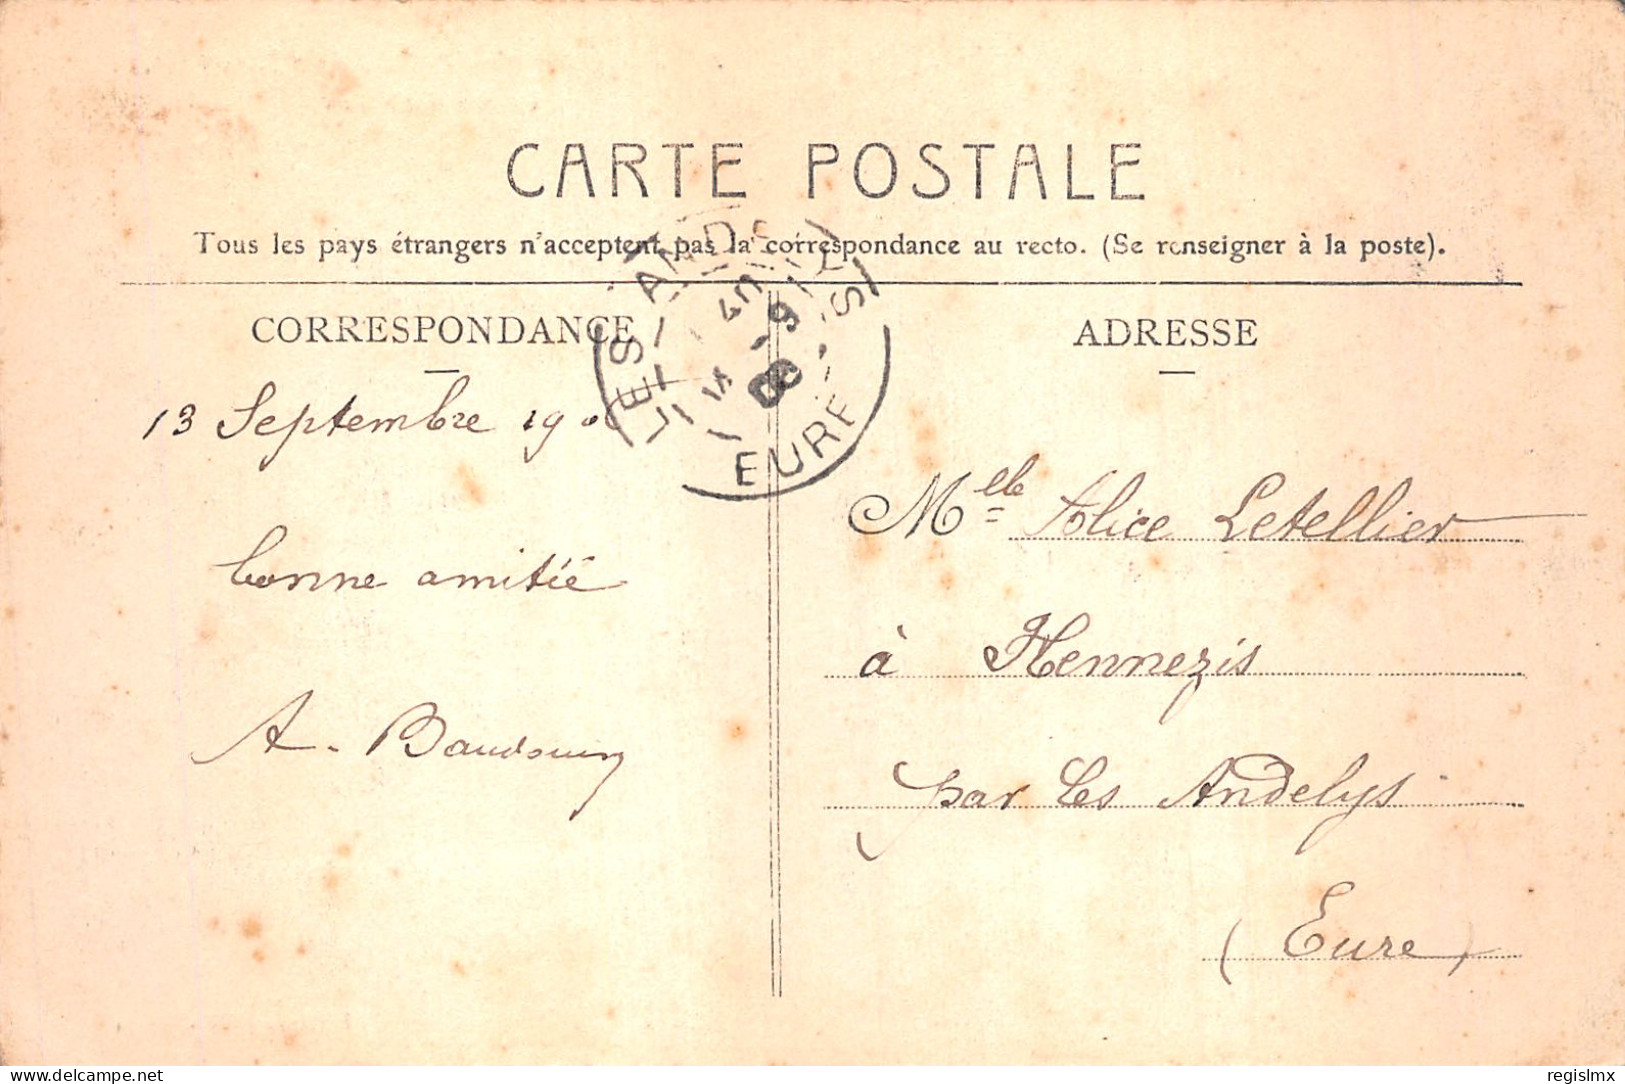 CARTE POSTALE
Tous les pays étrangers n'acceptent pas la correspondance au recto. (Se renseigner à la poste).
CORRESPONDANCE
ADRESSE
LES ANDELYS
EURE
13 Septembre 190
bonne amitié
A. Baudouin
Melle Alice Letellier
à Hennezis
par les Andelys
(Eure)
www.delcampe.net
regislmx